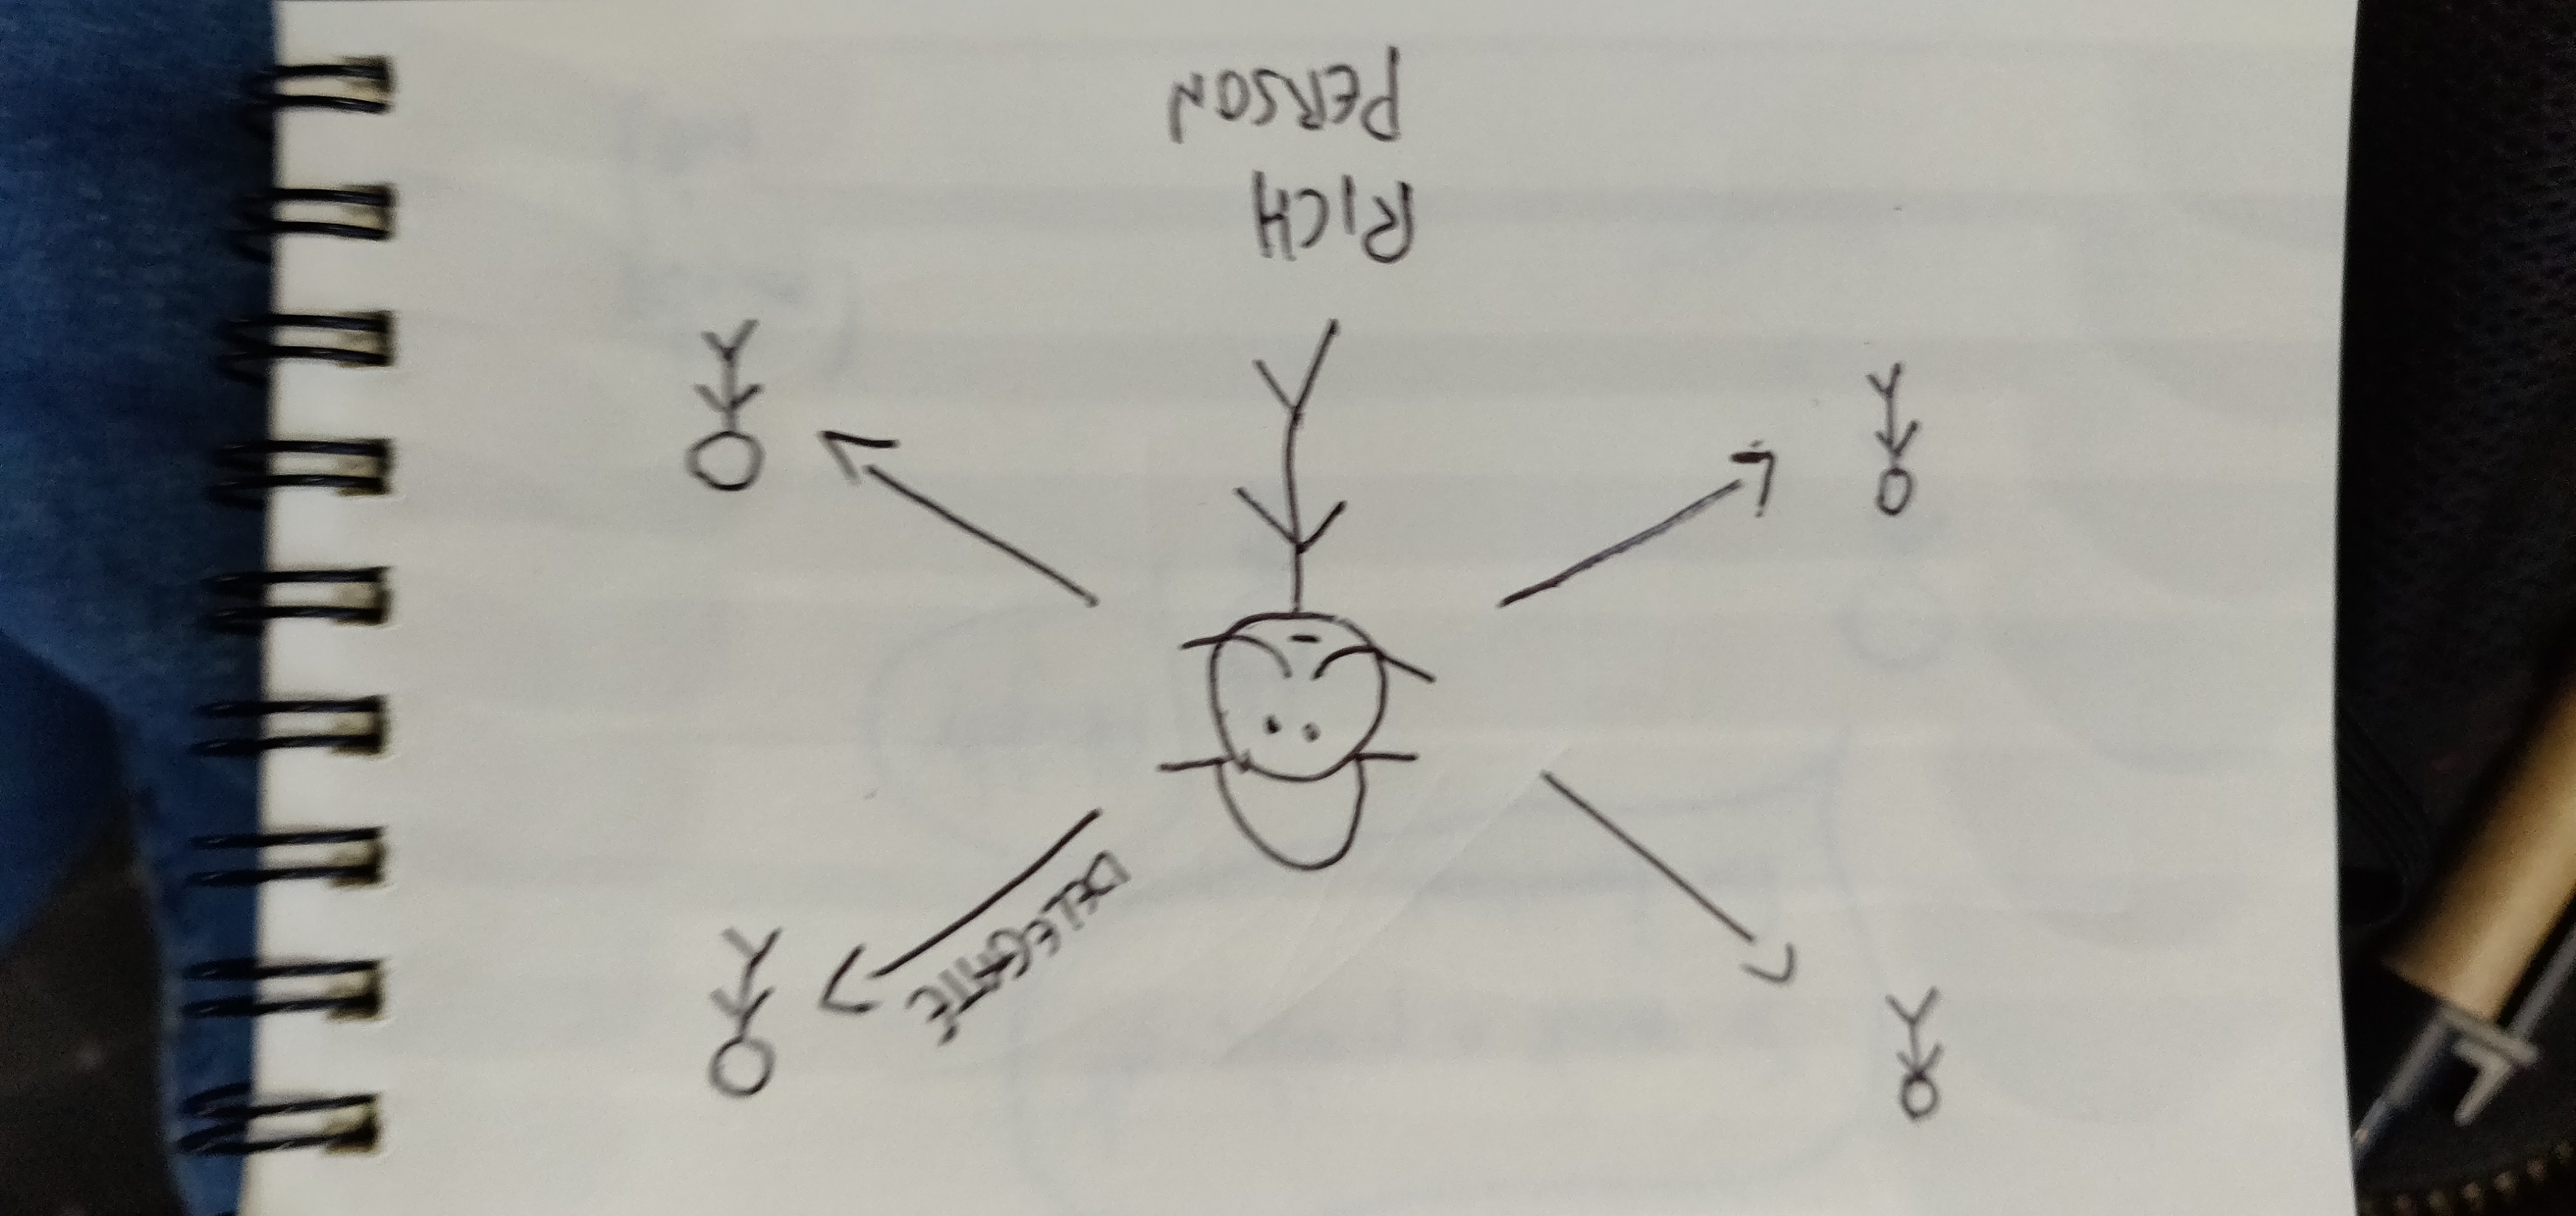 DELEGATE
RICH
PERSON